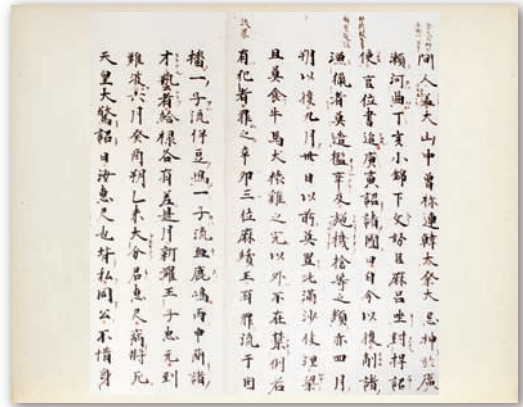 間人蓋大山中曾祢連韓犬祭大忌神於廣
瀬河曲丁亥小錦下久努臣麻呂坐對捍詔
使官位盡追庚寅詔諸國曰自今以後制諸
漁獵者莫造檻穽及施機槍等之類亦四月
朔以後九月卅日以前莫置比滿沙伎理梁
且莫食牛馬犬猨雞之宍以外不在禁例若
有犯者罪之辛卯三位麻續王有罪流于因
播一子流伊豆嶋一子流血鹿嶋丙申簡諸
才藝者給祿各有差是月新羅王子忠元到
難波六月癸酉朔乙未大分君惠尺病將死
天皇大驚詔曰汝惠尺也背私向公不惜身